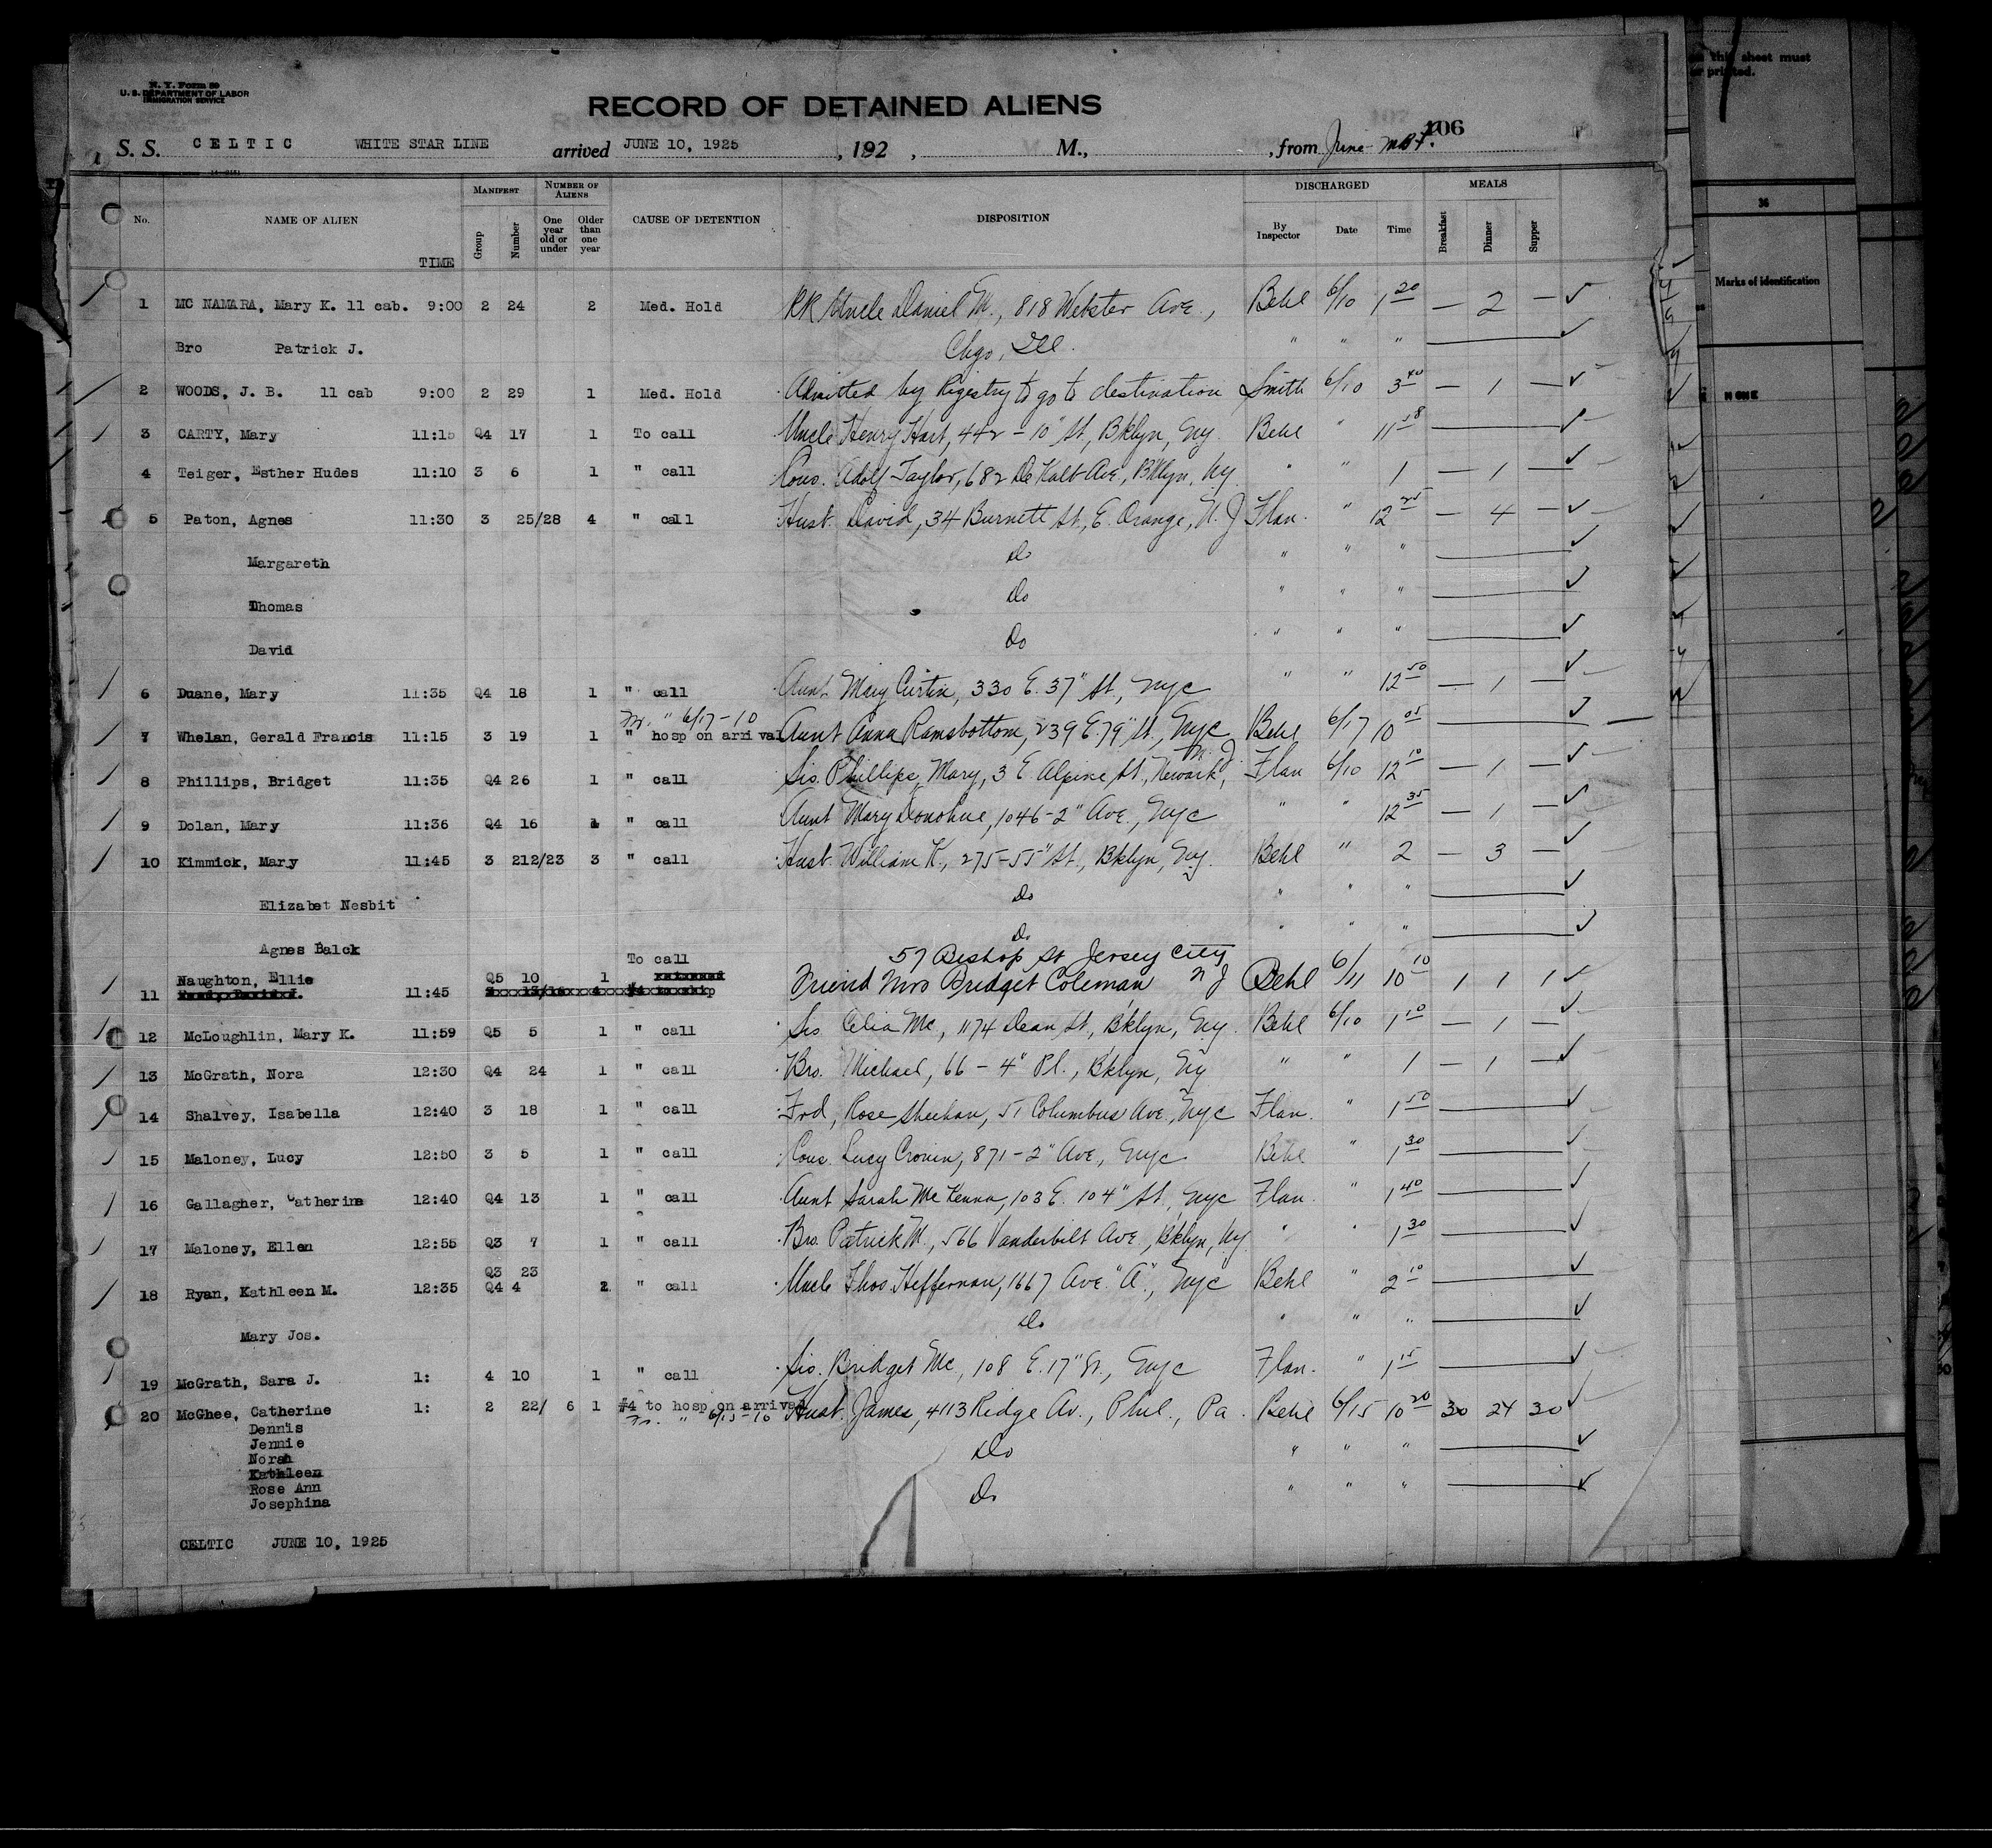 N. Y. Form 50
U. S. DEPARTMENT OF LABOR
IMMIGRATION SERVICE
RECORD OF DETAINED ALIENS
106
S. S. CELTIC WHITE STAR LINE arrived JUNE 10, 1925, 192 , M., , from June
No. NAME OF ALIEN TIME MANIFEST Group Number NUMBER OF ALIENS One year old or under Older than one year CAUSE OF DETENTION DISPOSITION DISCHARGED By Inspector Date Time MEALS Breakfast Dinner Supper
1 MC NAMARA, Mary K. 11 cab. 9:00 2 24 2 Med. Hold RR Uncle Daniel M., 818 Webster Ave., Behl 6/10 1 20 — 2 — ✓
Bro Patrick J. Chgo, Ill. " " " ✓
2 WOODS, J. B. 11 cab 9:00 2 29 1 Med. Hold Admitted by Registry to go to destination Smith 6/10 3 40 — 1 — ✓
3 CARTY, Mary 11:15 Q4 17 1 To call Uncle Henry Hart, 442 - 10" St, Bklyn, Ny. Behl " 11 58 ✓
4 Teiger, Esther Hudes 11:10 3 6 1 " call Cous. Adolf Taylor, 682 De Kalb Ave, Bklyn, Ny. " " 1 — 1 — ✓
5 Paton, Agnes 11:30 3 25/28 4 " call Husb. David, 34 Burnett St, E. Orange, N. J Flan. " 12 25 — 4 — ✓
Margareth Do " " " ✓
Thomas Do " " " ✓
David Do " " " ✓
6 Duane, Mary 11:35 Q4 18 1 " call Aunt Mary Curtin, 330 E. 37" St, Nyc " " 12 50 — 1 — ✓
" 6/17-10
7 Whelan, Gerald Francis 11:15 3 19 1 " hosp on arrival Aunt Anna Ramsbottom, 239 E. 79" St, Nyc Behl 6/17 10 05 ✓
8 Phillips, Bridget 11:35 Q4 26 1 " call Sis. Phillips, Mary, 3 E. Alpine St, Newark, N. J. Flan 6/10 12 10 — 1 — ✓
9 Dolan, Mary 11:36 Q4 16 1 " call Aunt Mary Donohue, 1046 - 2" Ave, Nyc " " 12 35 — 1 — ✓
10 Kimmick, Mary 11:45 3 212/23 3 " call Husb. William K., 275 - 55" St., Bklyn, Ny. Behl " 2 — 3 — ✓
Elizabet Nesbit Do " " " ✓
Agnes Balck Do " " " ✓
To call 57 Bishop St Jersey City
11 Naughton, Ellie 11:45 Q5 10 1 Friend Mrs Bridget Coleman N J Behl 6/11 10 10 1 1 1 ✓
12 McLoughlin, Mary K. 11:59 Q5 5 1 " call Sis. Celia Mc, 1174 Dean St, Bklyn, Ny. Behl 6/10 1 10 — 1 — ✓
13 McGrath, Nora 12:30 Q4 24 1 " call Bro. Michael, 66 - 4" Pl., Bklyn, Ny " " 1 — 1 — ✓
14 Shalvey, Isabella 12:40 3 18 1 " call Frd, Rose Sheehan, 51 Columbus Ave., Nyc Flan. " 1 50 ✓
15 Maloney, Lucy 12:50 3 5 1 " call Cous. Lucy Cronin, 871 - 2" Ave, Nyc Behl " 1 30 ✓
16 Gallagher, Catherine 12:40 Q4 13 1 " call Aunt Sarah McKenna, 103 E. 104" St., Nyc Flan. " 1 40 ✓
17 Maloney, Ellen 12:55 Q3 7 1 " call Bro. Patrick M., 566 Vanderbilt Ave., Bklyn, Ny " " 1 30 ✓
Q3 23
18 Ryan, Kathleen M. 12:35 Q4 4 2 " call Uncle Thos. Heffernan, 1667 Ave. "A", Nyc Behl " 2 10 ✓
Mary Jos. Do " " " ✓
19 McGrath, Sara J. 1: 4 10 1 " call Sis. Bridget Mc, 108 E. 17" St., Nyc Flan. " 1 15 ✓
20 McGhee, Catherine 1: 2 22/ 6 1 #4 to hosp on arrival Husb. James, 4113 Ridge Av., Phil., Pa. Behl 6/15 10 20 30 24 30 ✓
" 6/15-10
Dennis
Jennie Do " " " ✓
Norah
Kathleen
Rose Ann Do " " " ✓
Josephina
CELTIC JUNE 10, 1925
this sheet must
printed.
36
Marks of identification
NONE